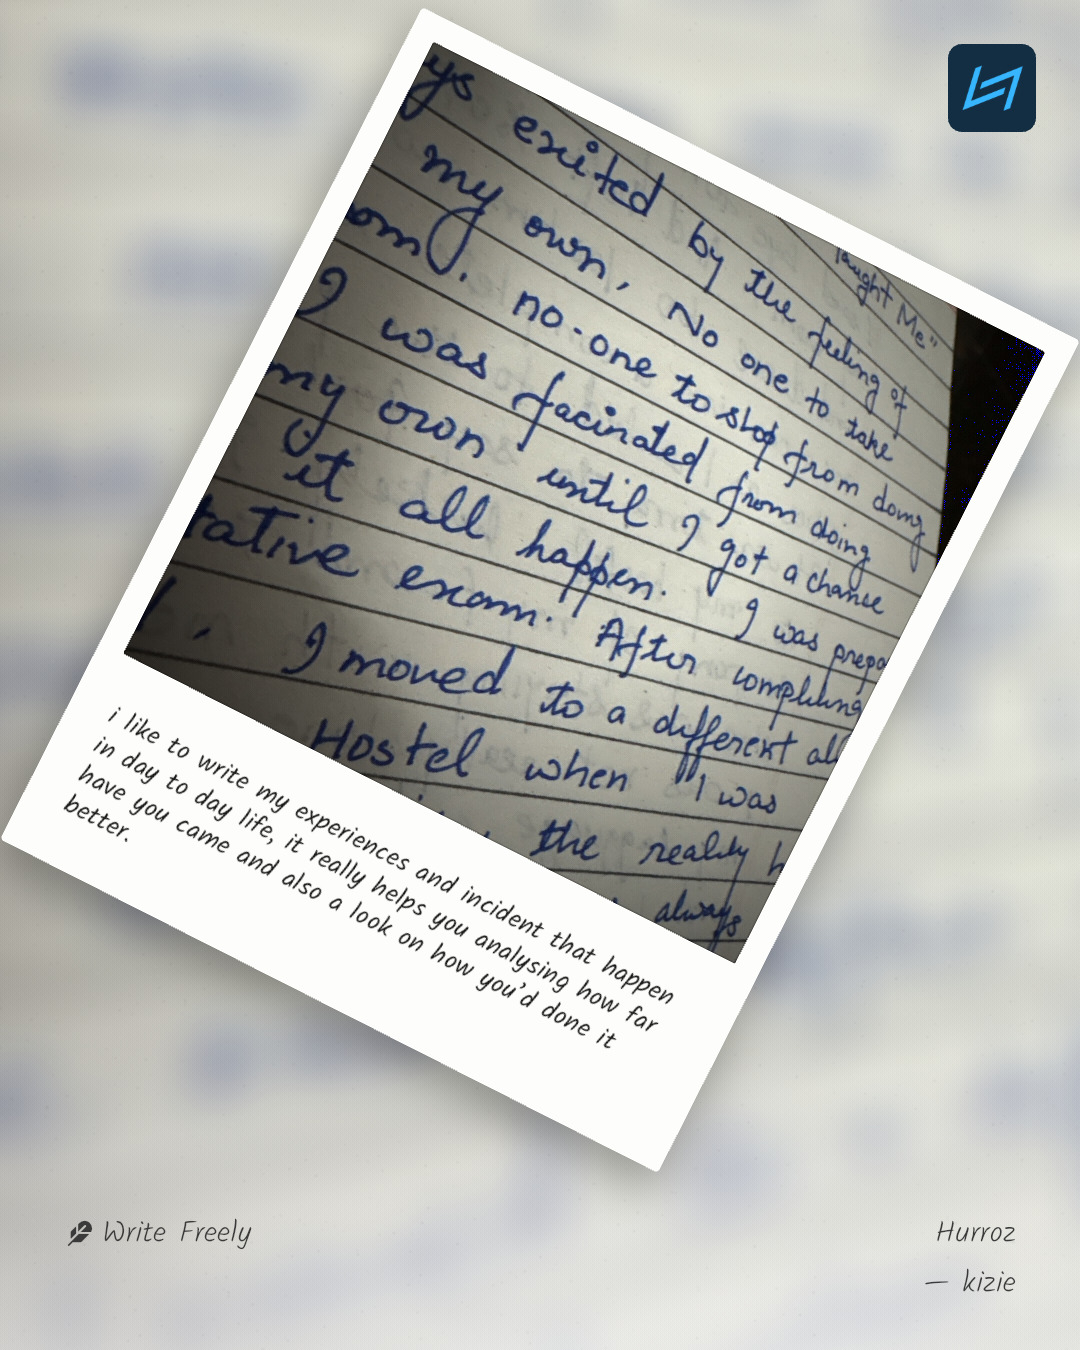 taught Me"
ys exited by the feeling of
my own, No one to take
om. no-one to stop from doing
I was facinated from doing
my own until I got a chance
it all happen. I was prepa
tative exam. After completing
I moved to a different all
Hostel when I was
the reality h
always
i like to write my experiences and incident that happen
in day to day life, it really helps you analysing how far
have you came and also a look on how you'd done it
better.
Write Freely
Hurroz
— kizie